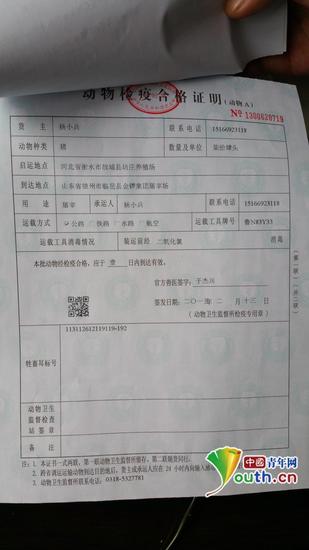 动物检疫合格证明 (动物 A)
№ 1300620719
货 主 杨小兵 联系电话 15166923118
动物种类 猪 数量及单位
启运地点 河北省衡水市故城县坊庄养殖场
到达地点 山东省德州市临邑县金锣集团屠宰场
用 途 屠宰 承运人 杨小兵 联系电话 15166923118
运载方式 ☑公路 □铁路 □水路 □航空 运载工具牌号 鲁N83Y33
运载工具消毒情况 装运前经 二氧化氯 消毒
本批动物经检疫合格，应于 壹 日内到达有效。
官方兽医签字：于杰兴
签发日期：二〇一 年 二 月 十三 日
（动物卫生监督所检疫专用章）
牲畜耳标号 113112612119119-192
动物卫生监督检查站签章
备 注
注：1. 本证书一式两联，第一联动物卫生监督所留存，第二联随货同行。
2. 跨省调运动物到达目的地后，货主或承运人应在 24 小时内向输入地
3. 动物卫生监督所联系电话：0318-5327781
中国青年网
Youth.cn